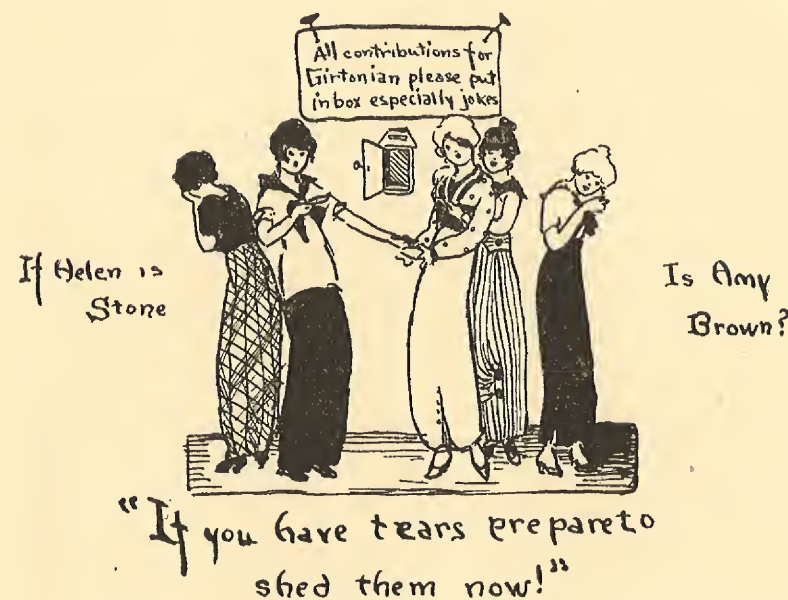 All contributions for
Girtonian please put
in box especially jokes
If Helen is
Stone
Is Amy
Brown?
"If you have tears prepare to
shed them now!"